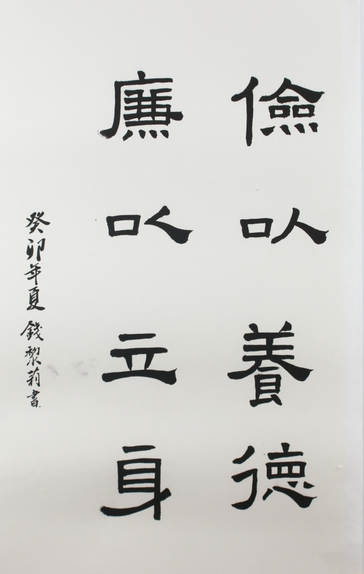 儉以養德
廉以立身
癸卯年夏錢黎莉書